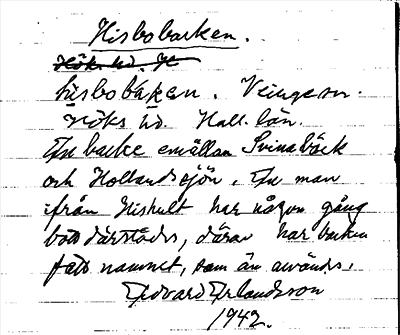 Hisbobacken.
Hök. hd. H
hisbobáken. Veinge sn.
Höks hd. Hall. län.
En backe emällan Svinabäck
och Hollandssjön. En man
ifrån Hishult har någon gång
bott därstädes, därav har backen
fått namnet, som än användes.
Edvard Erlandsson
1942.